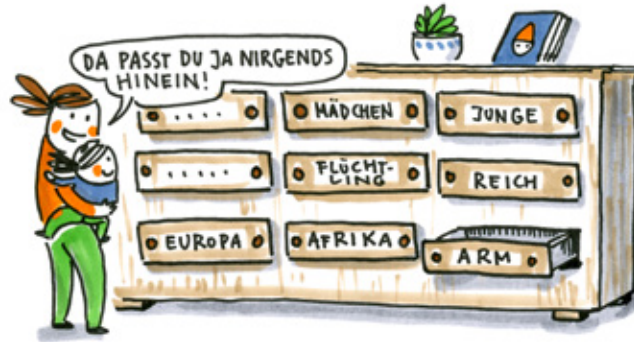 DA PASST DU JA NIRGENDS
HINEIN!
.... 
MÄDCHEN
JUNGE
.....
FLÜCHT-
LING
REICH
EUROPA
AFRIKA
ARM